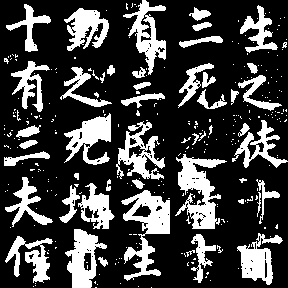 生之徒十有
三死之徒十
有三民之生
動之死地亦
十有三夫何